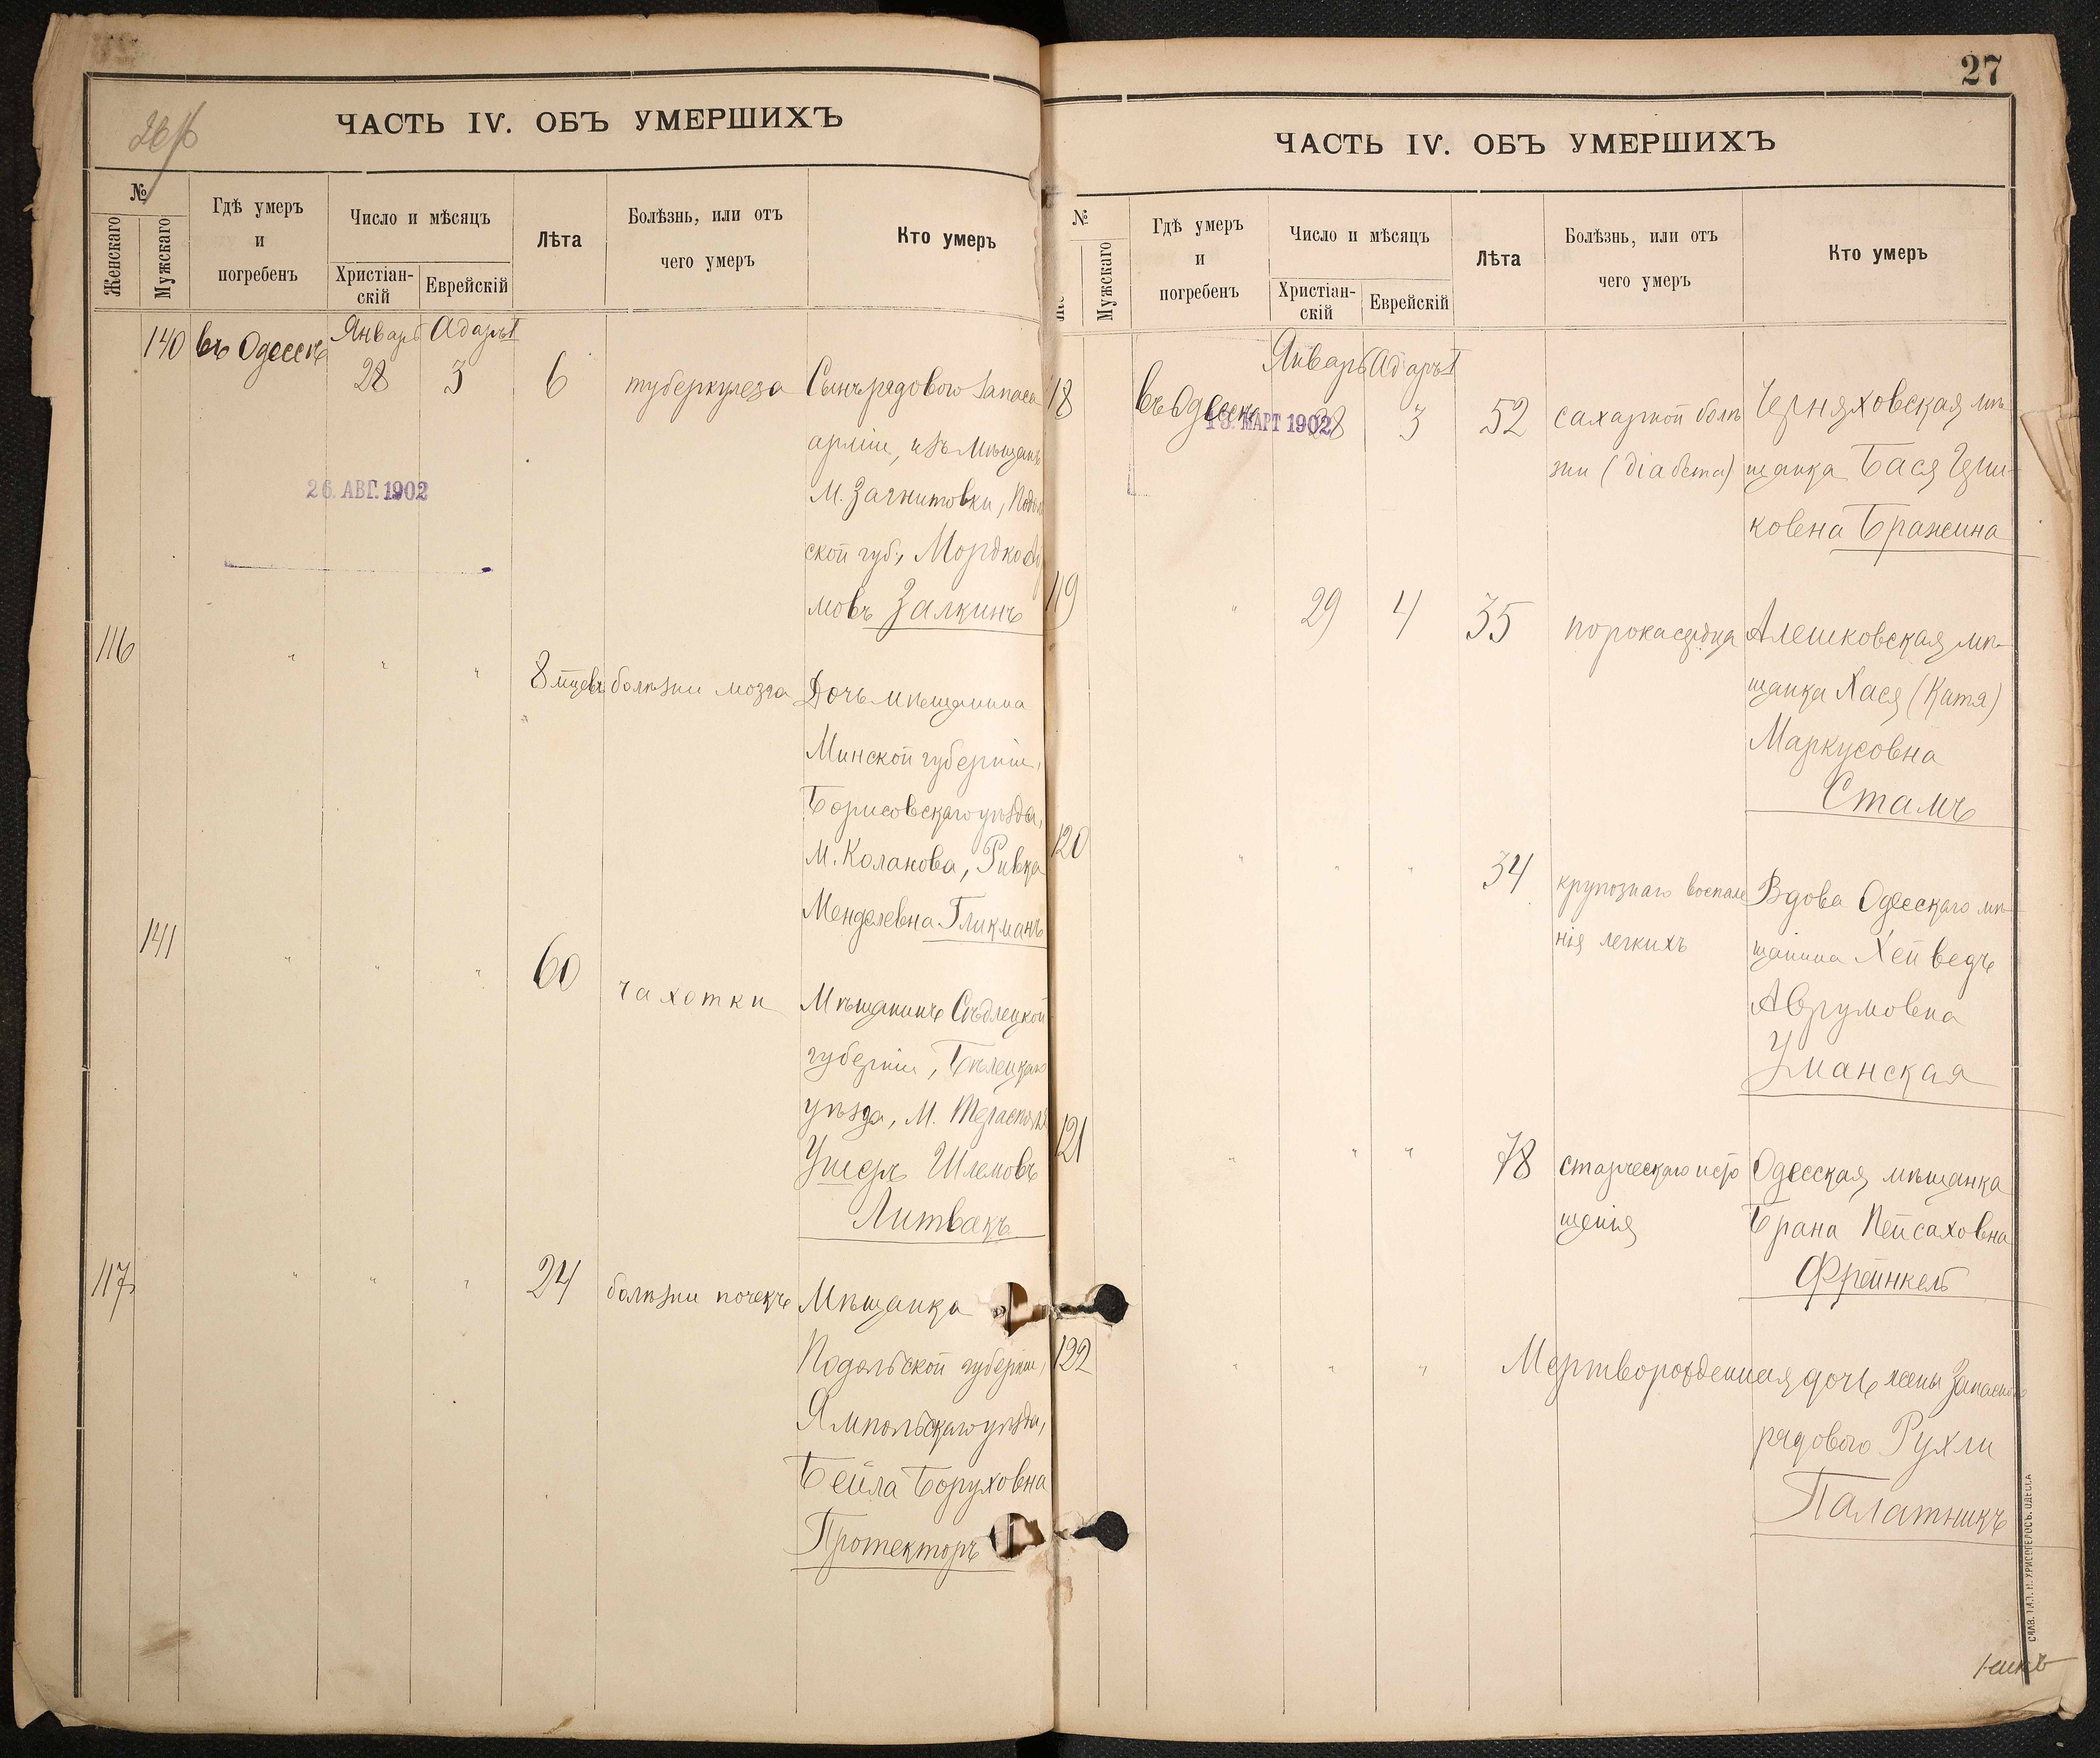 ЧАСТЬ IV. ОБЪ УМЕРШИХЪ
№
Женскаго
Мужскаго
Гдѣ умеръ
и
погребенъ
Число и мѣсяцъ
Христіан-
скій
Еврейскій
Лѣта
Болѣзнь, или отъ
чего умеръ
Кто умеръ
140 въ Одессѣ Январь 28 Адаръ I 3 6 туберкулеза Сынъ рядового запаса
арміи, изъ мѣщанъ
М. Загнитовки, Подоль
ской губ., Мордко
мовъ Залкинъ
26. АВГ. 1902
116 " " " 8 мѣсцевъ болѣзни мозга Дочь мѣщанина
Минской губерніи,
Борисовскаго уѣзда,
М. Холанова, Ривка
Менделевна Гликманъ
141 " " " 60 чахотки Мѣщанинъ Сѣдлецкой
губерніи, Бѣлецкаго
уѣзда, М. Тераспол
Ушеръ Шлемовъ
Литвакъ
117 " " " 24 болѣзни почекъ Мѣщанка
Подольской губерніи,
Ямпольскаго уѣзда,
Бейла Боруховна
Протекторъ
27
ЧАСТЬ IV. ОБЪ УМЕРШИХЪ
№
Мужскаго
Гдѣ умеръ
и
погребенъ
Число и мѣсяцъ
Христіан-
скій
Еврейскій
Лѣта
Болѣзнь, или отъ
чего умеръ
Кто умеръ
18 въ Одессѣ Январь 28 Адаръ I 3 52 сахарной болѣ Черняховская мѣ-
зни (діабета) щанка Бася Ицы-
ковена Бражина
13. МАРТ 1902
119 " 29 4 35 порока сердца Алешковская мѣ-
щанка Хася (Катя)
Маркусовна
Стамъ
120 " " " 34 крупознаго воспале Вдова Одесскаго мѣ-
нія легкихъ щанина Хейведъ
Аврумовна
Уманская
121 " " " 78 старческаго исто Одесская мѣщанка
щенія Брана Пейсаховна
Френкель
122 " " " Мертворожденная дочь жены запасного
рядового Рухли
Палатникъ